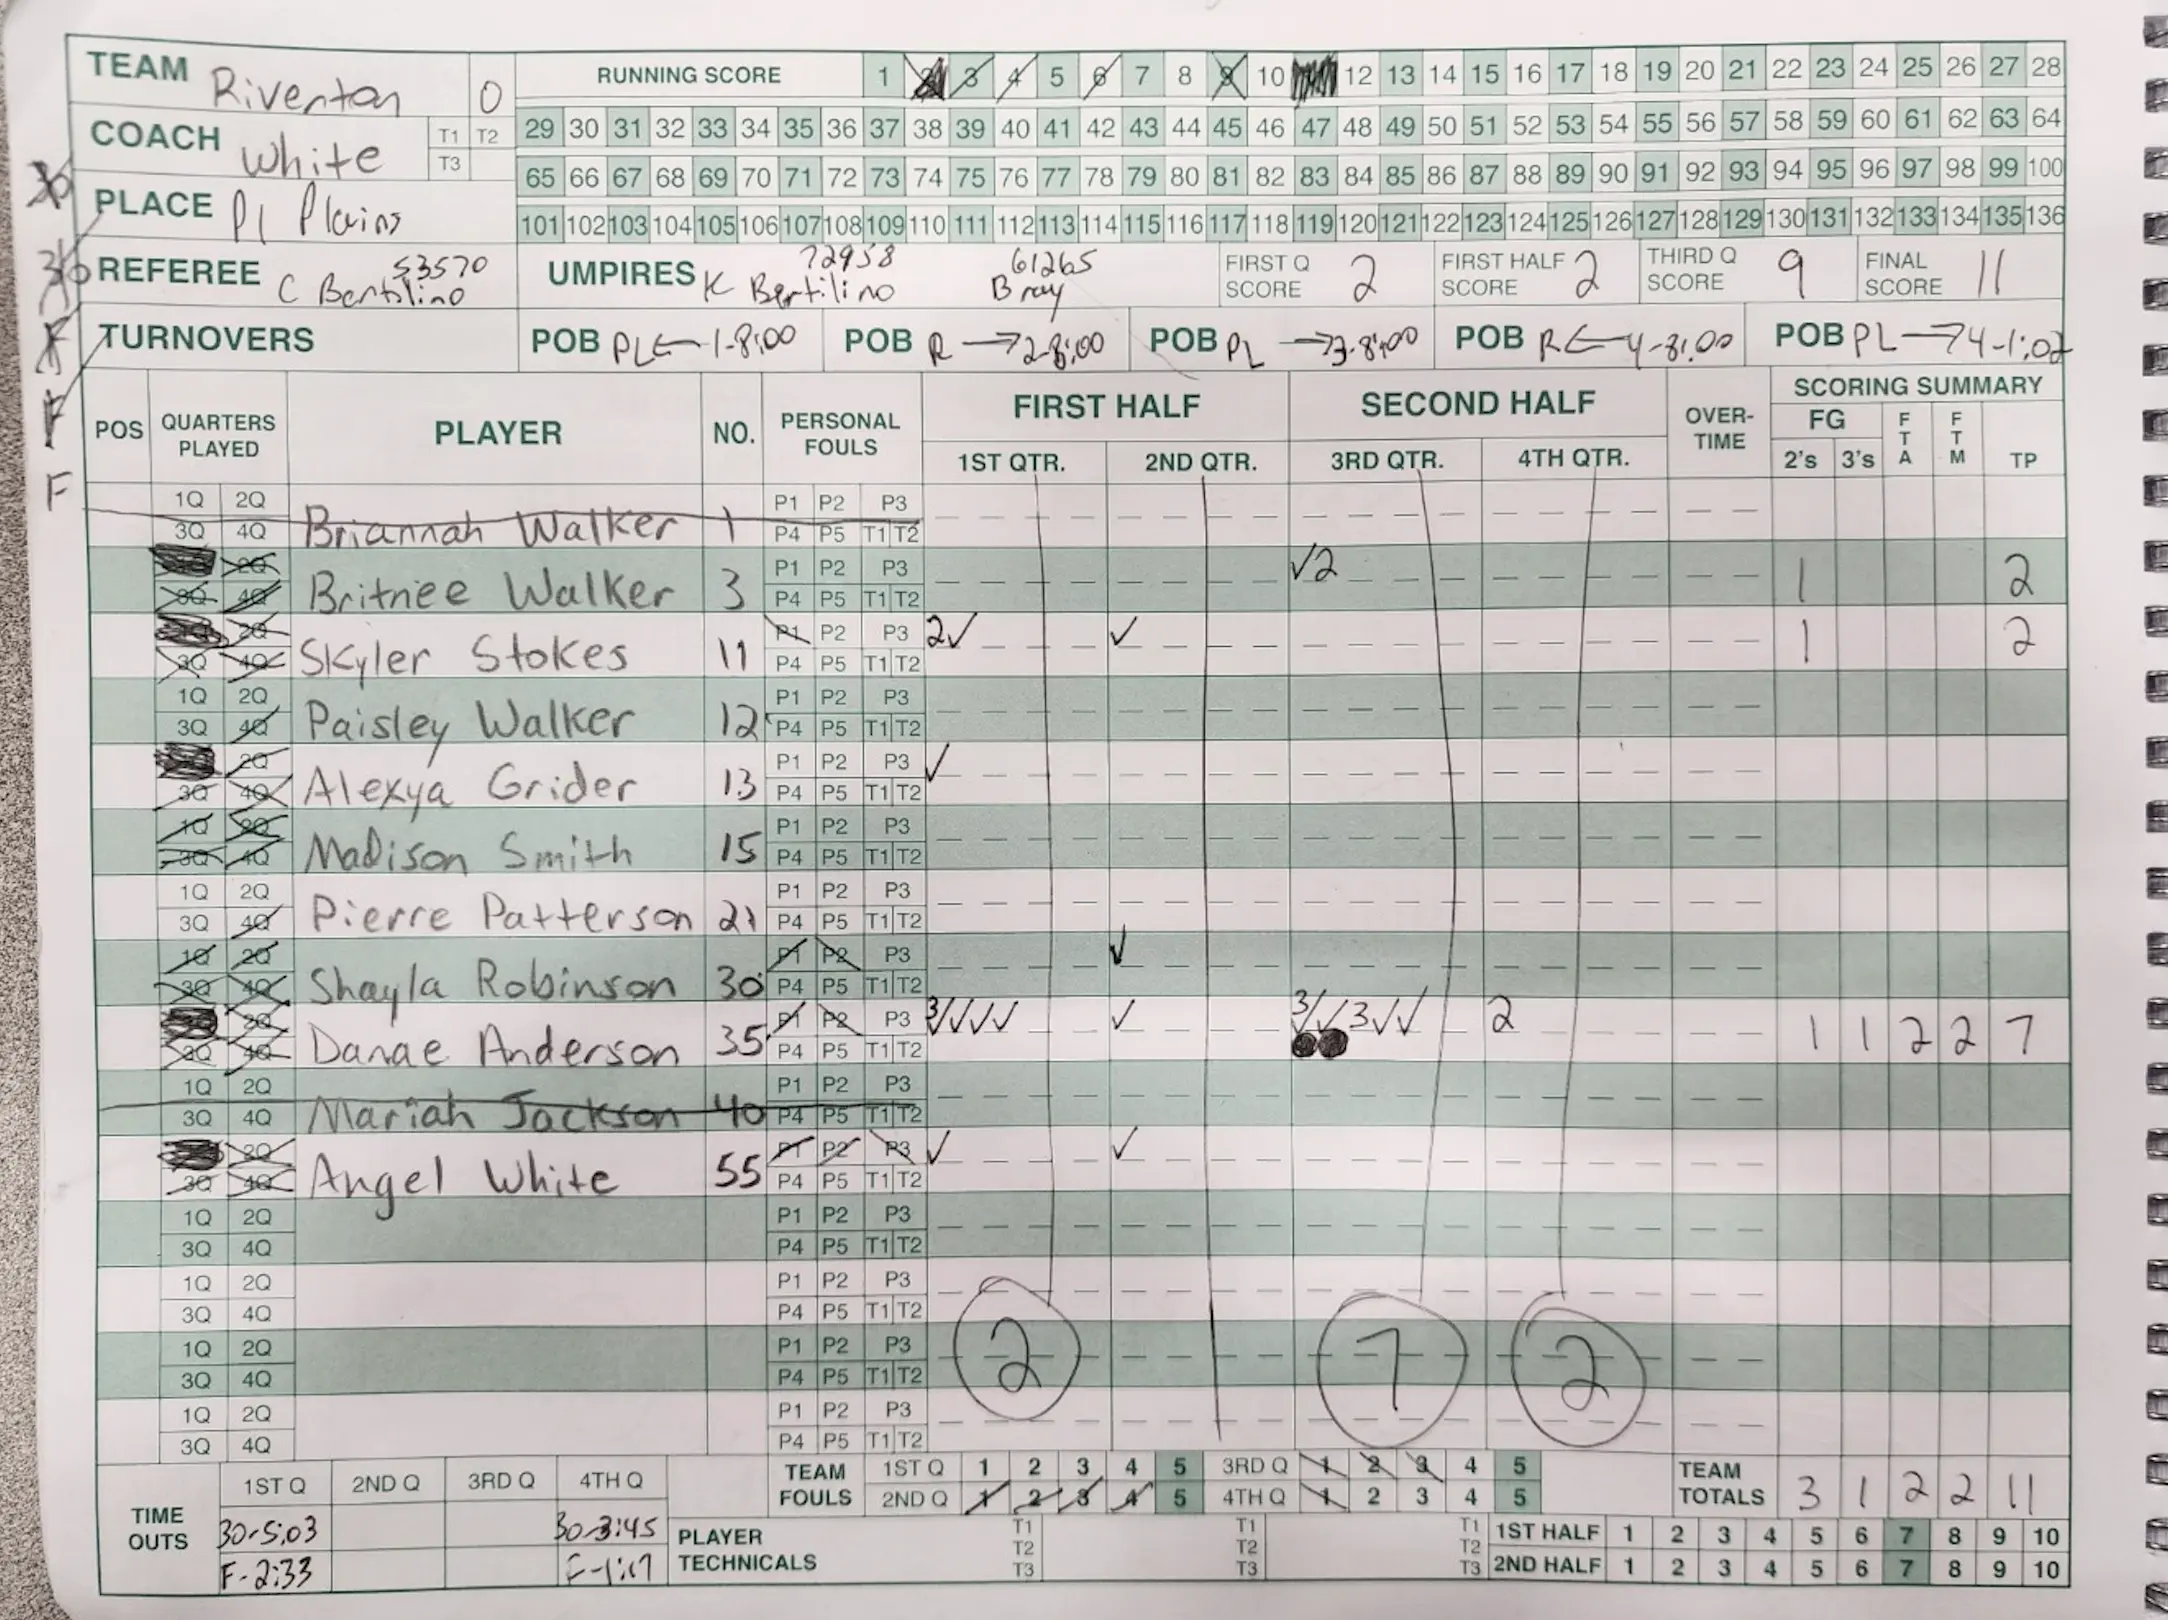 TEAM Riverton 0
COACH White T1 T2 T3
PLACE Pl Plains
REFEREE C Bertilino 53570
UMPIRES K Bertilino 72958 Bray 61265
RUNNING SCORE 1 2 3 4 5 6 7 8 9 10 11 12 13 14 15 16 17 18 19 20 21 22 23 24 25 26 27 28
29 30 31 32 33 34 35 36 37 38 39 40 41 42 43 44 45 46 47 48 49 50 51 52 53 54 55 56 57 58 59 60 61 62 63 64
65 66 67 68 69 70 71 72 73 74 75 76 77 78 79 80 81 82 83 84 85 86 87 88 89 90 91 92 93 94 95 96 97 98 99 100
101 102 103 104 105 106 107 108 109 110 111 112 113 114 115 116 117 118 119 120 121 122 123 124 125 126 127 128 129 130 131 132 133 134 135 136
FIRST Q SCORE 2 FIRST HALF SCORE 2 THIRD Q SCORE 9 FINAL SCORE 11
TURNOVERS POB PL ← 1-8:00 POB R → 2-8:00 POB PL → 3-8:00 POB R ← 4-8:00 POB PL → 4-1:02
30
F
F
F
POS QUARTERS PLAYED PLAYER NO. PERSONAL FOULS FIRST HALF SECOND HALF OVER-TIME SCORING SUMMARY
1ST QTR. 2ND QTR. 3RD QTR. 4TH QTR. FG 2's 3's FTA FTM TP
1Q 2Q P1 P2 P3
3Q 4Q Briannah Walker 1 P4 P5 T1 T2
2Q P1 P2 P3 ✓2
3Q 4Q Britnee Walker 3 P4 P5 T1 T2 1 2
2Q P1 P2 P3 2✓ ✓
3Q 4Q Skyler Stokes 11 P4 P5 T1 T2 1 2
1Q 2Q P1 P2 P3
3Q 4Q Paisley Walker 12 P4 P5 T1 T2
2Q P1 P2 P3 ✓
3Q 4Q Alexya Grider 13 P4 P5 T1 T2
1Q 2Q P1 P2 P3
3Q 4Q Madison Smith 15 P4 P5 T1 T2
1Q 2Q P1 P2 P3
3Q 4Q Pierre Patterson 21 P4 P5 T1 T2
1Q 2Q P1 P2 P3 ✓
3Q 4Q Shayla Robinson 30 P4 P5 T1 T2
2Q P1 P2 P3 3✓✓✓✓ ✓ 3✓✓3✓✓ 2
3Q 4Q Danae Anderson 35 P4 P5 T1 T2 1 1 2 2 7
1Q 2Q P1 P2 P3
3Q 4Q Mariah Jackson 40 P4 P5 T1 T2
2Q P1 P2 P3 ✓ ✓
3Q 4Q Angel White 55 P4 P5 T1 T2
1Q 2Q P1 P2 P3
3Q 4Q P4 P5 T1 T2
1Q 2Q P1 P2 P3
3Q 4Q P4 P5 T1 T2
1Q 2Q P1 P2 P3 2 7 2
3Q 4Q P4 P5 T1 T2
1Q 2Q P1 P2 P3
3Q 4Q P4 P5 T1 T2
TIME OUTS 1ST Q 2ND Q 3RD Q 4TH Q
30-5:03 30-3:45
F-2:33 F-1:17
TEAM FOULS 1ST Q 1 2 3 4 5 3RD Q 1 2 3 4 5
2ND Q 1 2 3 4 5 4TH Q 1 2 3 4 5
TEAM TOTALS 3 1 2 2 11
PLAYER TECHNICALS T1 T2 T3 T1 T2 T3 T1 T2 T3
1ST HALF 1 2 3 4 5 6 7 8 9 10
2ND HALF 1 2 3 4 5 6 7 8 9 10